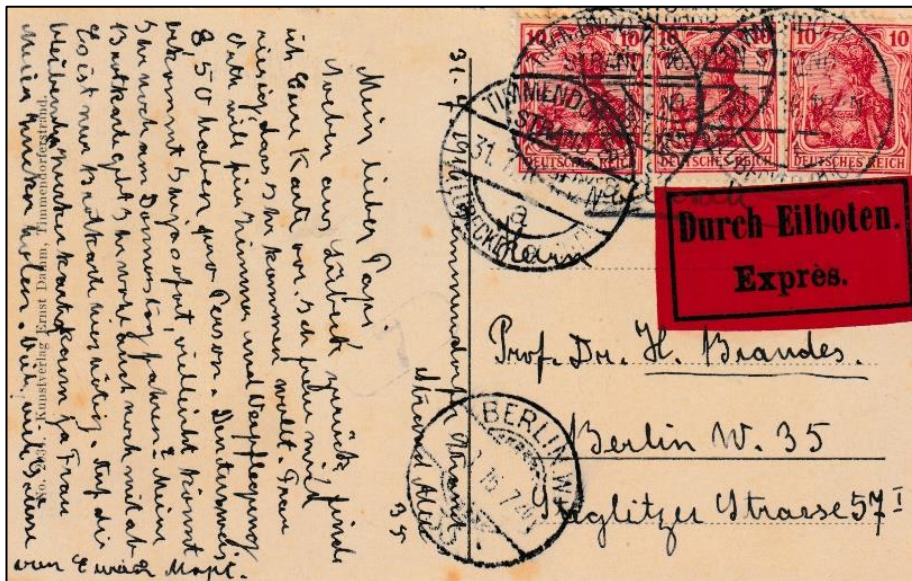 10 10 10 10
DEUTSCHES REICH DEUTSCHES REICH DEUTSCHES REICH
TIMMENDORFER
STRAND
31.7.
(LÜBECK)
Durch Eilboten.
Exprès.
Prof. Dr. H. Brandes.
Berlin W. 35
Steglitzer Strasse 57 I
BERLIN W
35
31. 7. 1916 Timmendorfer Strand
Strand Allee
35
Mein lieber Papi!
Soeben aus Lübeck zurück, finde
ich Eure Karte vor. Ich freu mich
riesig, dass Ihr kommen wollt. Frau
Orth will für Zimmer und Verpflegung
8,50 haben, pro Person. Den
bekommt Ihr ja sofort, vielleicht könnt
Ihr noch am Donnerstag fahren? Meine
Brotkarte noch mit ab
Es ist nur Brotkarte hier nötig. Auf die
Zuckerkarte kann ja Frau
Zucker holen. Viele, viele Grüsse
von Eurer
Kunstverlag Ernst Dahm, Timmendorferstrand.